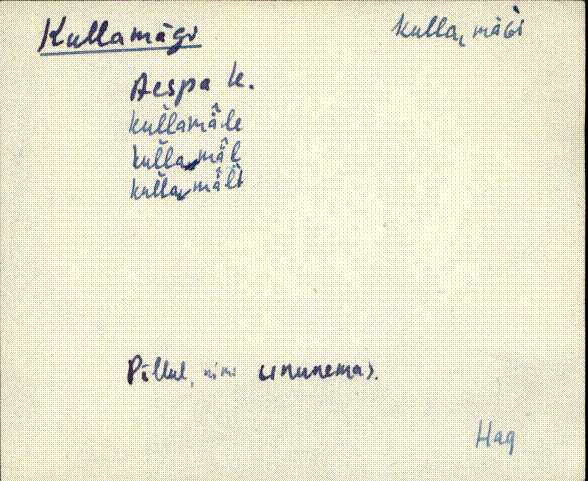 Kullamägi
kulla, mägi
Aespa k.
kullamäle
kulla mäl
kulla mält
Pillul, nimi ununemas.
Hag